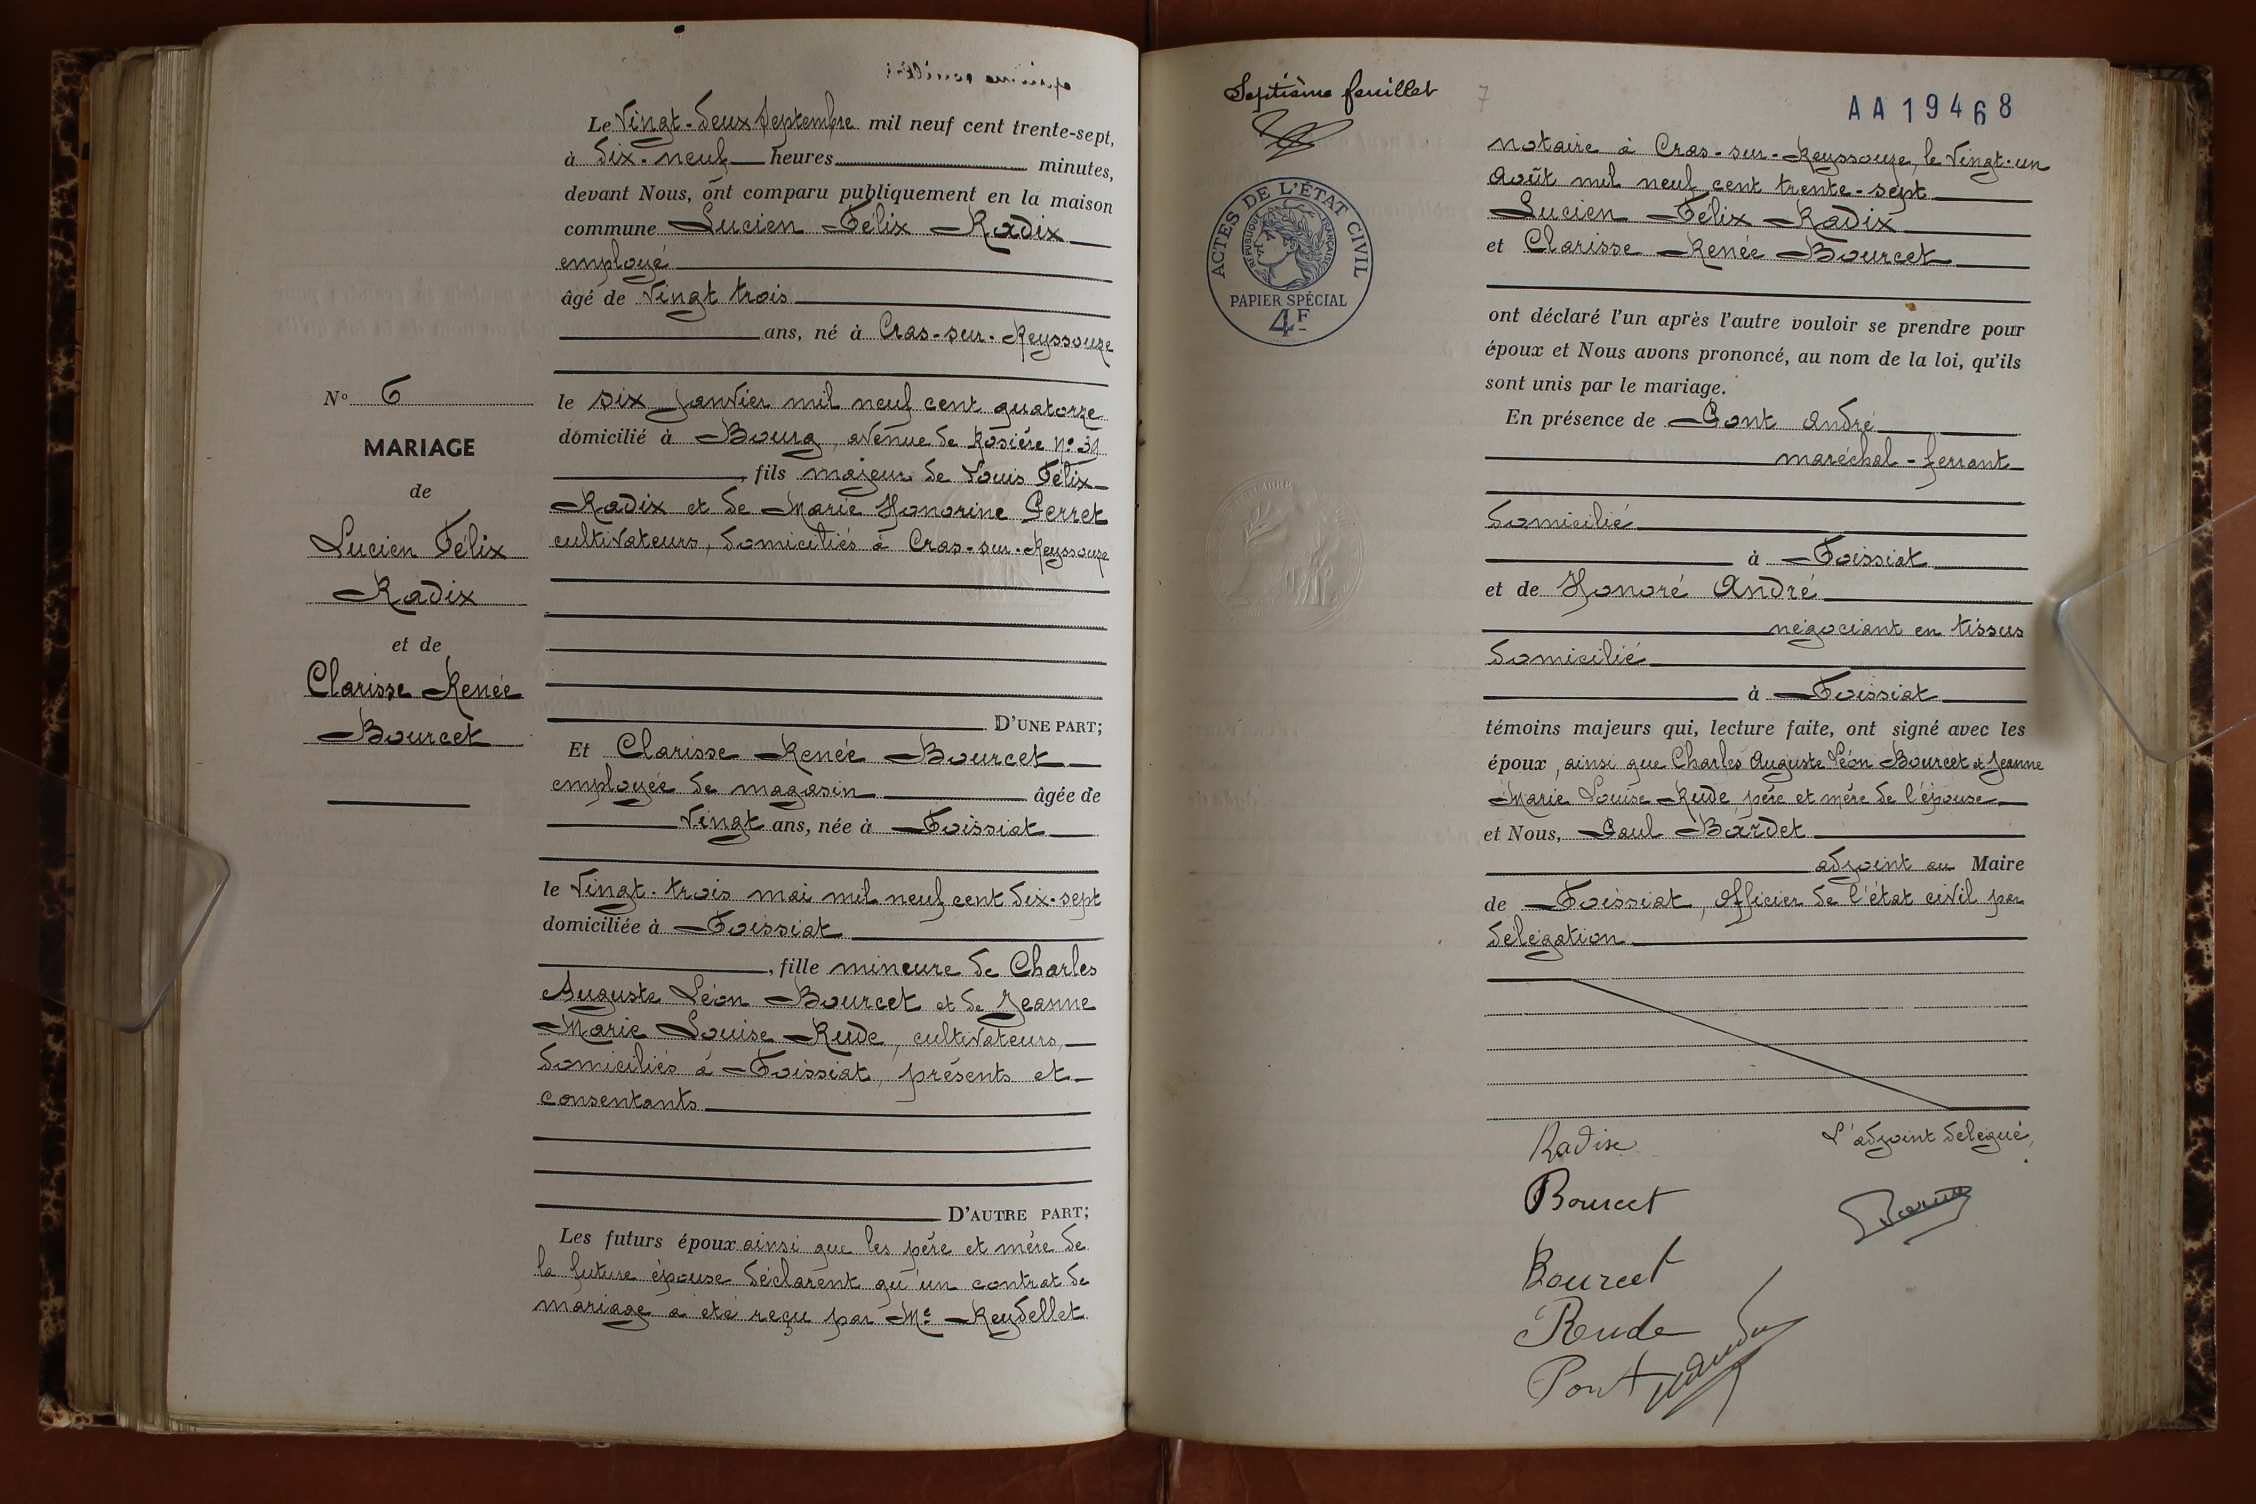 Le Vingt-deux Septembre mil neuf cent trente-sept,
à Dix-neuf heures minutes,
devant Nous, ont comparu publiquement en la maison
commune Lucien Félix Radix
employé
âgé de Vingt trois
ans, né à Cras-sur-Reyssouze
le six Janvier mil neuf cent quatorze
domicilié à Bourg, avenue de Rosière No 31
, fils majeur de Louis Félix
Radix et de Marie Honorine Perret
cultivateurs, domiciliés à Cras-sur-Reyssouze
D'UNE PART;
No 6
MARIAGE
de
Lucien Félix
Radix
et de
Clarisse Renée
Bourcet
Et Clarisse Renée Bourcet
employée de magasin âgée de
Vingt ans, née à Foissiat
le Vingt-trois mai mil neuf cent dix-sept
domiciliée à Foissiat
, fille mineure de Charles
Auguste Léon Bourcet et de Jeanne
Marie Louise Rude, cultivateurs,
domiciliés à Foissiat, présents et
consentants
D'AUTRE PART;
Les futurs époux ainsi que les père et mère de
la future épouse déclarent qu'un contrat de
mariage a été reçu par Me Reydellet
Septième feuillet 7
AA19468
ACTES DE L'ÉTAT CIVIL
RÉPUBLIQUE FRANÇAISE
PAPIER SPÉCIAL
4F
notaire à Cras-sur-Reyssouze, le Vingt-un
Août mil neuf cent trente-sept
Lucien Félix Radix
et Clarisse Renée Bourcet
ont déclaré l'un après l'autre vouloir se prendre pour
époux et Nous avons prononcé, au nom de la loi, qu'ils
sont unis par le mariage.
En présence de Pont André
maréchal-ferrant
domicilié
à Foissiat
et de Honoré André
négociant en tissus
domicilié
à Foissiat
témoins majeurs qui, lecture faite, ont signé avec les
époux, ainsi que Charles Auguste Léon Bourcet et Jeanne
Marie Louise Rude, père et mère de l'épouse
et Nous, Paul Bardet
adjoint au Maire
de Foissiat, officier de l'état civil par
délégation
L'adjoint délégué,
Radix
Bourcet
Bourcet
Rude
Pont